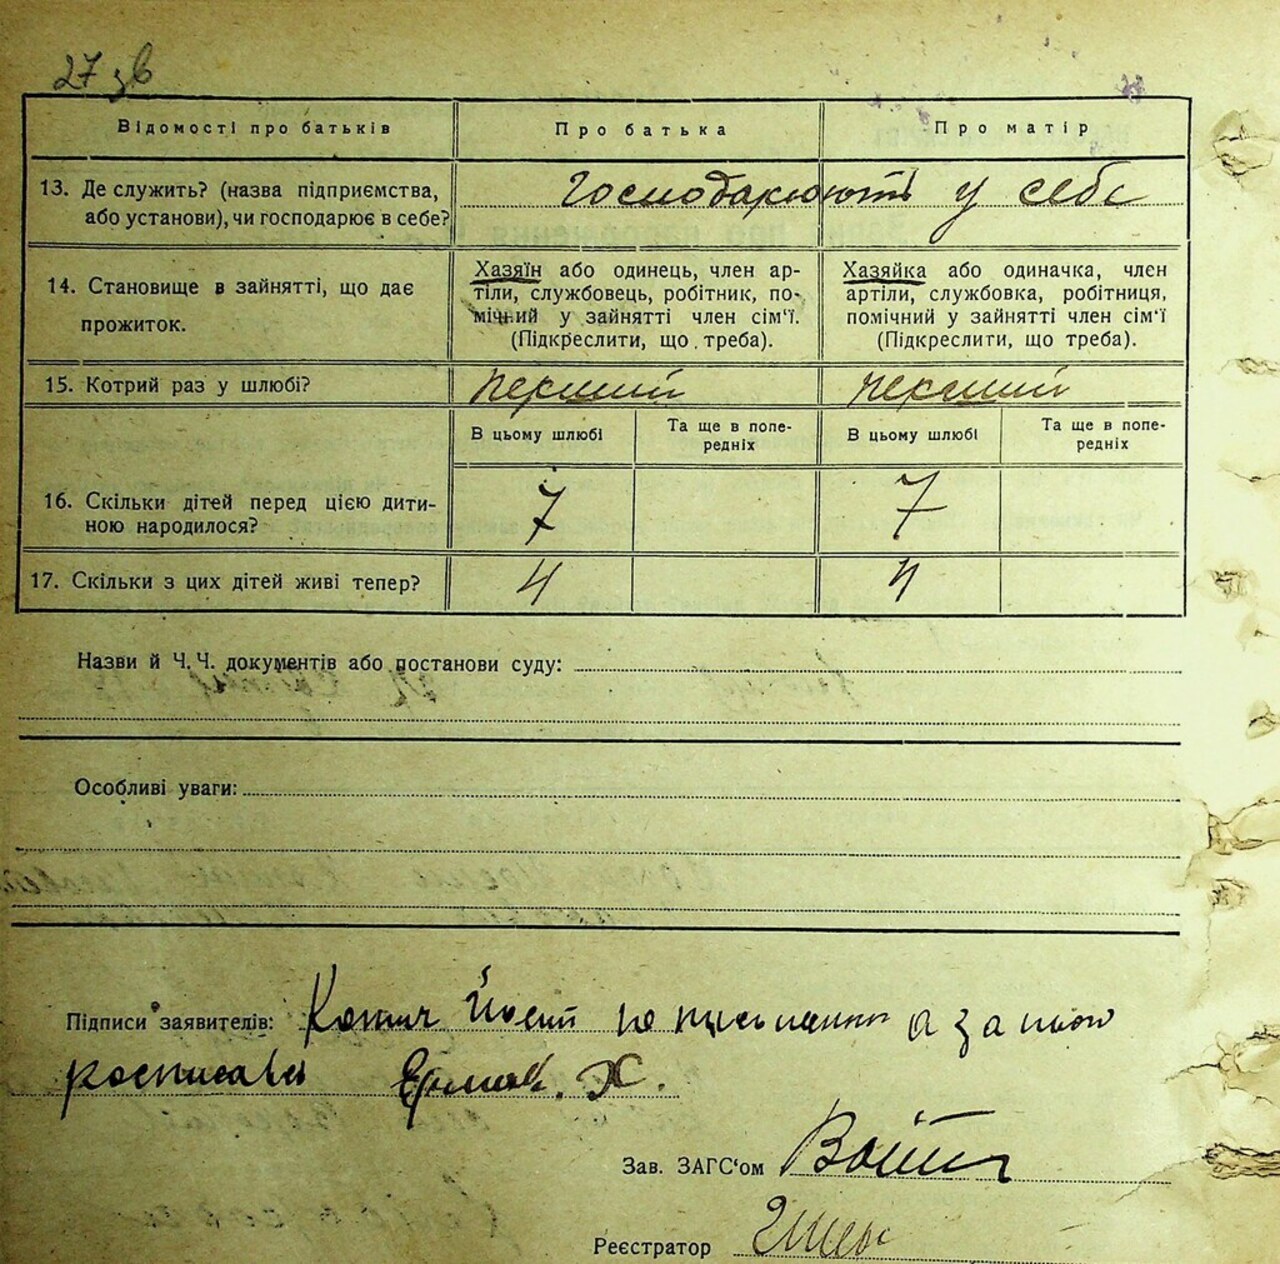 27 зв
Відомості про батьків Про батька Про матір
13. Де служить? (назва підприємства, Господарюють у себе
або установи), чи господарює в себе?
14. Становище в зайнятті, що дає
прожиток.
Хазяїн або одинець, член ар-
тіли, службовець, робітник, по-
мічний у зайнятті член сім'ї.
(Підкреслити, що треба).
Хазяйка або одиначка, член
артіли, службовка, робітниця,
помічний у зайнятті член сім'ї
(Підкреслити, що треба).
15. Котрий раз у шлюбі? перший перший
В цьому шлюбі Та ще в попе-
редніх В цьому шлюбі Та ще в попе-
редніх
16. Скільки дітей перед цією дити-
ною народилося? 7 7
17. Скільки з цих дітей живі тепер? 4 4
Назви й Ч.Ч. документів або постанови суду:
Особливі уваги:
Підписи заявителів: Йосип а за нього
росписався Ермак. Х.
Зав. ЗАГС'ом
Реєстратор